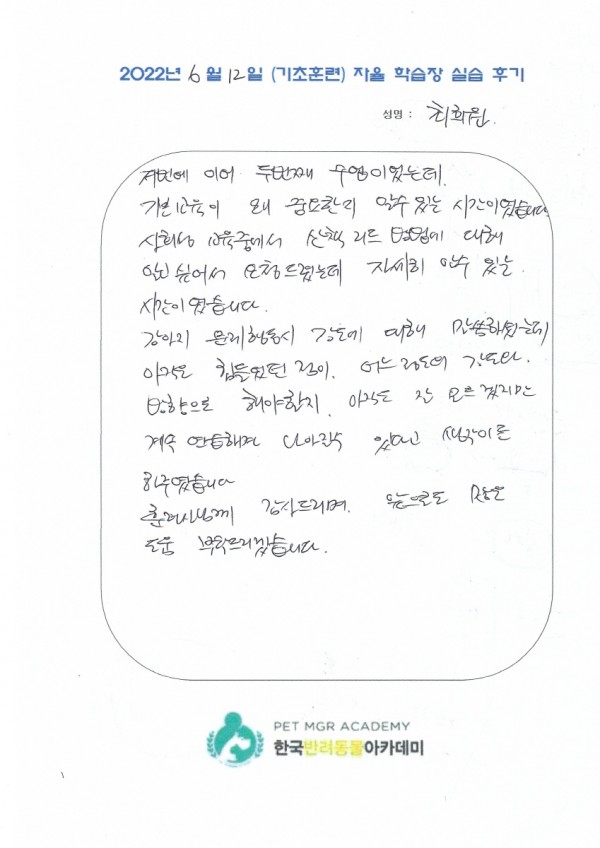 2022년 6월 12일 (기초훈련) 자율 학습장 실습 후기
성명 : 최희원
저번에 이어 두번째 수업이었는데.
기본교육이 왜 중요한지 알수 있는 시간이었습니다
사회성 교육중에서 산책 리드 방법에 대해
알고 싶어서 요청드렸는데 자세히 알수 있는
시간이였습니다.
강아지 문제행동시 강도에 대해 말씀하셨는데
아직도 힘들었던 점이. 어느정도의 강도와
방향으로 해야할지. 아직도 잘 모르겠지만
계속 연습해 나아갈수 있다고 생각이
하였습니다
훈련사님께 감사드리며. 앞으로도 많은
도움 부탁드리겠습니다.
PET MGR ACADEMY
한국반려동물아카데미